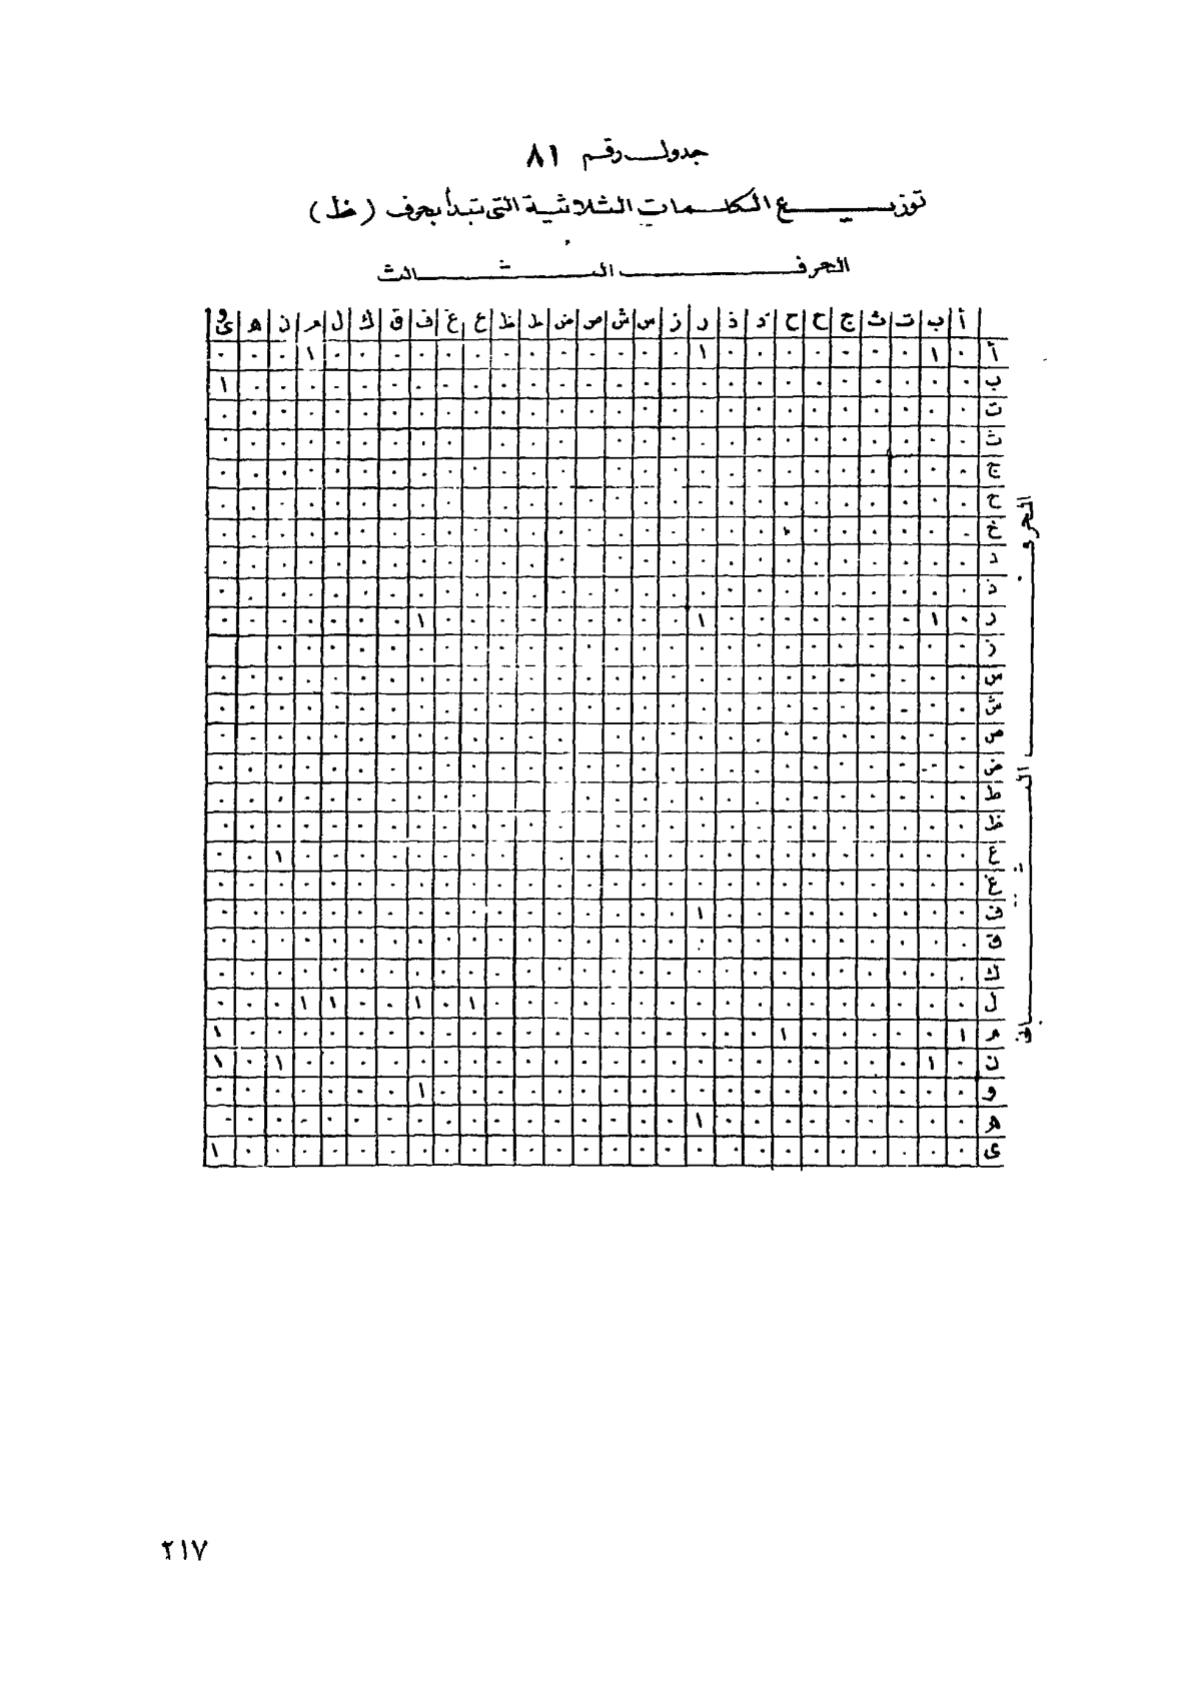 جدول رقم ٨١
توزيع الكلمات الثلاثية التى تبدأ بحرف (ظ)
الحرف الثالث
أ ب ت ث ج ح خ د ذ ر ز س ش ص ض ط ظ ع غ ف ق ك ل م ن ه و ى
أ ٠ ١ ٠ ٠ ٠ ٠ ٠ ٠ ٠ ١ ٠ ٠ ٠ ٠ ٠ ٠ ٠ ٠ ٠ ٠ ٠ ٠ ٠ ١ ٠ ٠ ٠
ب ٠ ٠ ٠ ٠ ٠ ٠ ٠ ٠ ٠ ٠ ٠ ٠ ٠ ٠ ٠ ٠ ٠ ٠ ٠ ٠ ٠ ٠ ٠ ٠ ٠ ٠ ١
ت ٠ ٠ ٠ ٠ ٠ ٠ ٠ ٠ ٠ ٠ ٠ ٠ ٠ ٠ ٠ ٠ ٠ ٠ ٠ ٠ ٠ ٠ ٠ ٠ ٠ ٠ ٠
ث ٠ ٠ ٠ ٠ ٠ ٠ ٠ ٠ ٠ ٠ ٠ ٠ ٠ ٠ ٠ ٠ ٠ ٠ ٠ ٠ ٠ ٠ ٠ ٠ ٠
ج ٠ ٠ ٠ ٠ ٠ ٠ ٠ ٠ ٠ ٠ ٠ ٠ ٠ ٠ ٠ ٠ ٠ ٠ ٠ ٠ ٠ ٠ ٠ ٠ ٠ ٠
ح ٠ ٠ ٠ ٠ ٠ ٠ ٠ ٠ ٠ ٠ ٠ ٠ ٠ ٠ ٠ ٠ ٠ ٠ ٠ ٠ ٠ ٠ ٠ ٠ ٠ ٠ ٠
خ ٠ ٠ ٠ ٠ ٠ ٠ ٠ ٠ ٠ ٠ ٠ ٠ ٠ ٠ ٠ ٠ ٠ ٠ ٠ ٠ ٠ ٠ ٠ ٠ ٠ ٠ ٠
د ٠ ٠ ٠ ٠ ٠ ٠ ٠ ٠ ٠ ٠ ٠ ٠ ٠ ٠ ٠ ٠ ٠ ٠ ٠ ٠ ٠ ٠ ٠ ٠ ٠ ٠ ٠
ذ ٠ ٠ ٠ ٠ ٠ ٠ ٠ ٠ ٠ ٠ ٠ ٠ ٠ ٠ ٠ ٠ ٠ ٠ ٠ ٠ ٠ ٠ ٠ ٠ ٠ ٠ ٠
ر ٠ ١ ٠ ٠ ٠ ٠ ٠ ٠ ٠ ١ ٠ ٠ ٠ ٠ ٠ ٠ ٠ ٠ ٠ ١ ٠ ٠ ٠ ٠ ٠ ٠ ٠
ز ٠ ٠ ٠ ٠ ٠ ٠ ٠ ٠ ٠ ٠ ٠ ٠ ٠ ٠ ٠ ٠ ٠ ٠ ٠ ٠ ٠ ٠ ٠ ٠ ٠
س ٠ ٠ ٠ ٠ ٠ ٠ ٠ ٠ ٠ ٠ ٠ ٠ ٠ ٠ ٠ ٠ ٠ ٠ ٠ ٠ ٠ ٠ ٠ ٠ ٠ ٠ ٠
ش ٠ ٠ ٠ ٠ ٠ ٠ ٠ ٠ ٠ ٠ ٠ ٠ ٠ ٠ ٠ ٠ ٠ ٠ ٠ ٠ ٠ ٠ ٠ ٠ ٠ ٠ ٠
ص ٠ ٠ ٠ ٠ ٠ ٠ ٠ ٠ ٠ ٠ ٠ ٠ ٠ ٠ ٠ ٠ ٠ ٠ ٠ ٠ ٠ ٠ ٠ ٠ ٠ ٠ ٠
ض ٠ ٠ ٠ ٠ ٠ ٠ ٠ ٠ ٠ ٠ ٠ ٠ ٠ ٠ ٠ ٠ ٠ ٠ ٠ ٠ ٠ ٠ ٠ ٠ ٠ ٠ ٠
ط ٠ ٠ ٠ ٠ ٠ ٠ ٠ ٠ ٠ ٠ ٠ ٠ ٠ ٠ ٠ ٠ ٠ ٠ ٠ ٠ ٠ ٠ ٠ ٠ ٠ ٠ ٠
ظ ٠ ٠ ٠ ٠ ٠ ٠ ٠ ٠ ٠ ٠ ٠ ٠ ٠ ٠ ٠ ٠ ٠ ٠ ٠ ٠ ٠ ٠ ٠ ٠ ٠ ٠ ٠
ع ٠ ٠ ٠ ٠ ٠ ٠ ٠ ٠ ٠ ٠ ٠ ٠ ٠ ٠ ٠ ٠ ٠ ٠ ٠ ٠ ٠ ٠ ٠ ٠ ١ ٠ ٠
غ ٠ ٠ ٠ ٠ ٠ ٠ ٠ ٠ ٠ ٠ ٠ ٠ ٠ ٠ ٠ ٠ ٠ ٠ ٠ ٠ ٠ ٠ ٠ ٠ ٠ ٠ ٠
ف ٠ ٠ ٠ ٠ ٠ ٠ ٠ ٠ ٠ ١ ٠ ٠ ٠ ٠ ٠ ٠ ٠ ٠ ٠ ٠ ٠ ٠ ٠ ٠ ٠ ٠ ٠
ق ٠ ٠ ٠ ٠ ٠ ٠ ٠ ٠ ٠ ٠ ٠ ٠ ٠ ٠ ٠ ٠ ٠ ٠ ٠ ٠ ٠ ٠ ٠ ٠ ٠ ٠ ٠
ك ٠ ٠ ٠ ٠ ٠ ٠ ٠ ٠ ٠ ٠ ٠ ٠ ٠ ٠ ٠ ٠ ٠ ٠ ٠ ٠ ٠ ٠ ٠ ٠ ٠ ٠ ٠
ل ٠ ٠ ٠ ٠ ٠ ٠ ٠ ٠ ٠ ٠ ٠ ٠ ٠ ٠ ٠ ٠ ٠ ١ ٠ ١ ٠ ٠ ١ ١ ٠ ٠ ٠
م ١ ٠ ٠ ٠ ٠ ٠ ١ ٠ ٠ ٠ ٠ ٠ ٠ ٠ ٠ ٠ ٠ ٠ ٠ ٠ ٠ ٠ ٠ ٠ ٠ ٠ ١
ن ٠ ١ ٠ ٠ ٠ ٠ ٠ ٠ ٠ ٠ ٠ ٠ ٠ ٠ ٠ ٠ ٠ ٠ ٠ ٠ ٠ ٠ ٠ ٠ ١ ٠ ١
و ٠ ٠ ٠ ٠ ٠ ٠ ٠ ٠ ٠ ٠ ٠ ٠ ٠ ٠ ٠ ٠ ٠ ٠ ٠ ١ ٠ ٠ ٠ ٠ ٠ ٠ ٠
ه ٠ ٠ ٠ ٠ ٠ ٠ ٠ ٠ ٠ ١ ٠ ٠ ٠ ٠ ٠ ٠ ٠ ٠ ٠ ٠ ٠ ٠ ٠ ٠ ٠ ٠ ٠
ى ٠ ٠ ٠ ٠ ٠ ٠ ٠ ٠ ٠ ٠ ٠ ٠ ٠ ٠ ٠ ٠ ٠ ٠ ٠ ٠ ٠ ٠ ٠ ٠ ٠ ٠ ١
الحرف الثانى
٢١٧